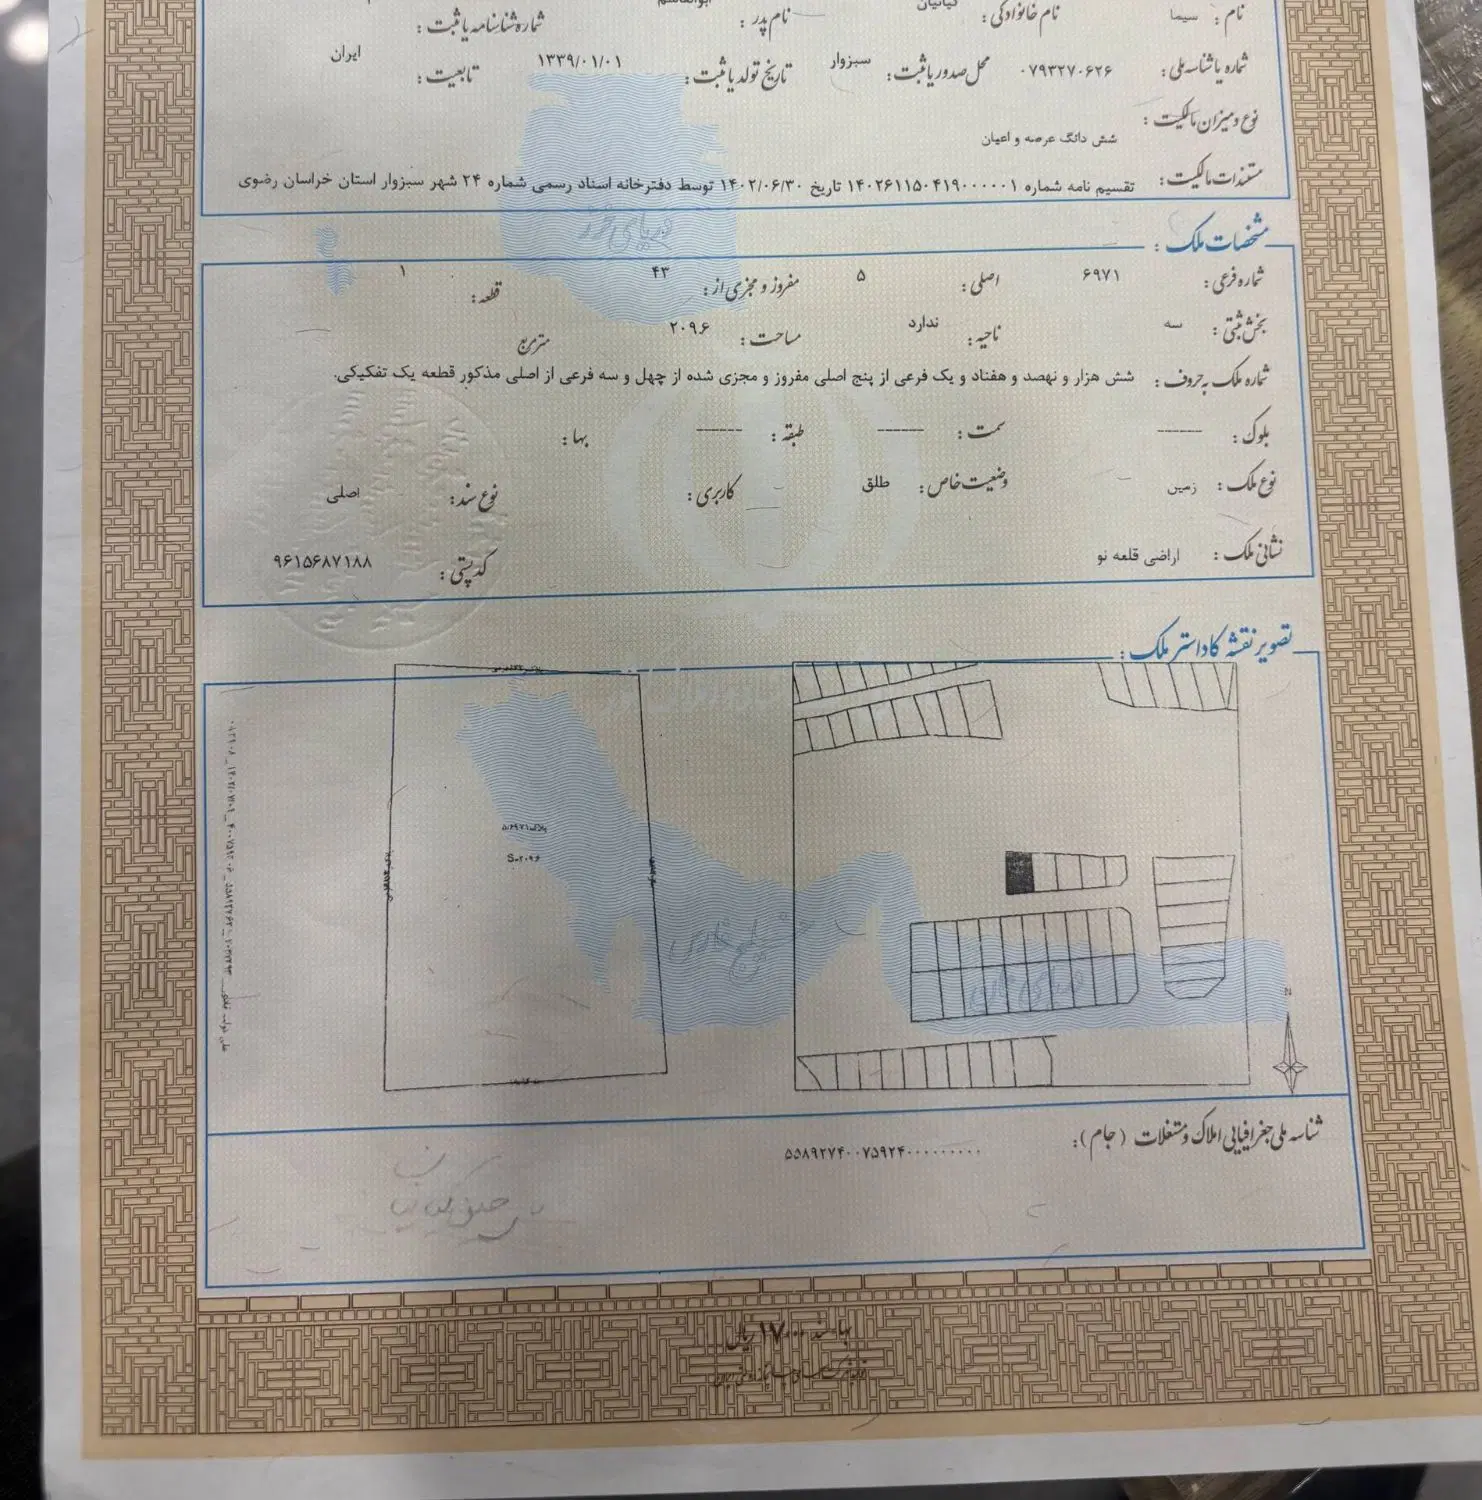 نام : سیما نام خانوادگی : کیانیان نام پدر : ابوالقاسم شماره شناسنامه یا ثبت :
شماره یا شناسه ملی : ۰۷۹۳۲۷۰۶۲۶ محل صدور یا ثبت : سبزوار تاریخ تولد یا ثبت : ۱۳۳۹/۰۱/۰۱ تابعیت : ایران
نوع و میزان مالکیت : شش دانگ عرصه و اعیان
مستندات مالکیت : تقسیم نامه شماره ۱۴۰۲۶۱۱۵۰۴۱۹۰۰۰۰۰۱ تاریخ ۱۴۰۲/۰۶/۳۰ توسط دفترخانه اسناد رسمی شماره ۲۴ شهر سبزوار استان خراسان رضوی
دریای خزر
مشخصات ملک :
شماره فرعی : ۶۹۷۱ اصلی : ۵ مفروز و مجزی از : ۴۳ قطعه : ۱
بخش ثبتی : سه ناحیه : ندارد مساحت : ۲۰۹۶ متر مربع
شماره ملک به حروف : شش هزار و نهصد و هفتاد و یک فرعی از پنج اصلی مفروز و مجزی شده از چهل و سه فرعی از اصلی مذکور قطعه یک تفکیکی.
بلوک : ------ سمت : ------ طبقه : ------ بها :
نوع ملک : زمین وضعیت خاص : طلق کاربری : نوع سند : اصلی
نشانی ملک : اراضی قلعه نو کد پستی : ۹۶۱۵۶۸۷۱۸۸
تصویر نقشه کاداستر ملک :
پلاک ۵/۶۹۷۱
S=۲۰۹۶
خلیج فارس
دریای عمان
N
شناسه ملی جغرافیایی املاک و مستغلات (جام) : ۵۵۸۹۲۷۴۰۰۷۵۹۲۴۰۰۰۰۰۰۰۰۰
بهاء سند ۱۷۰۰۰ ریال